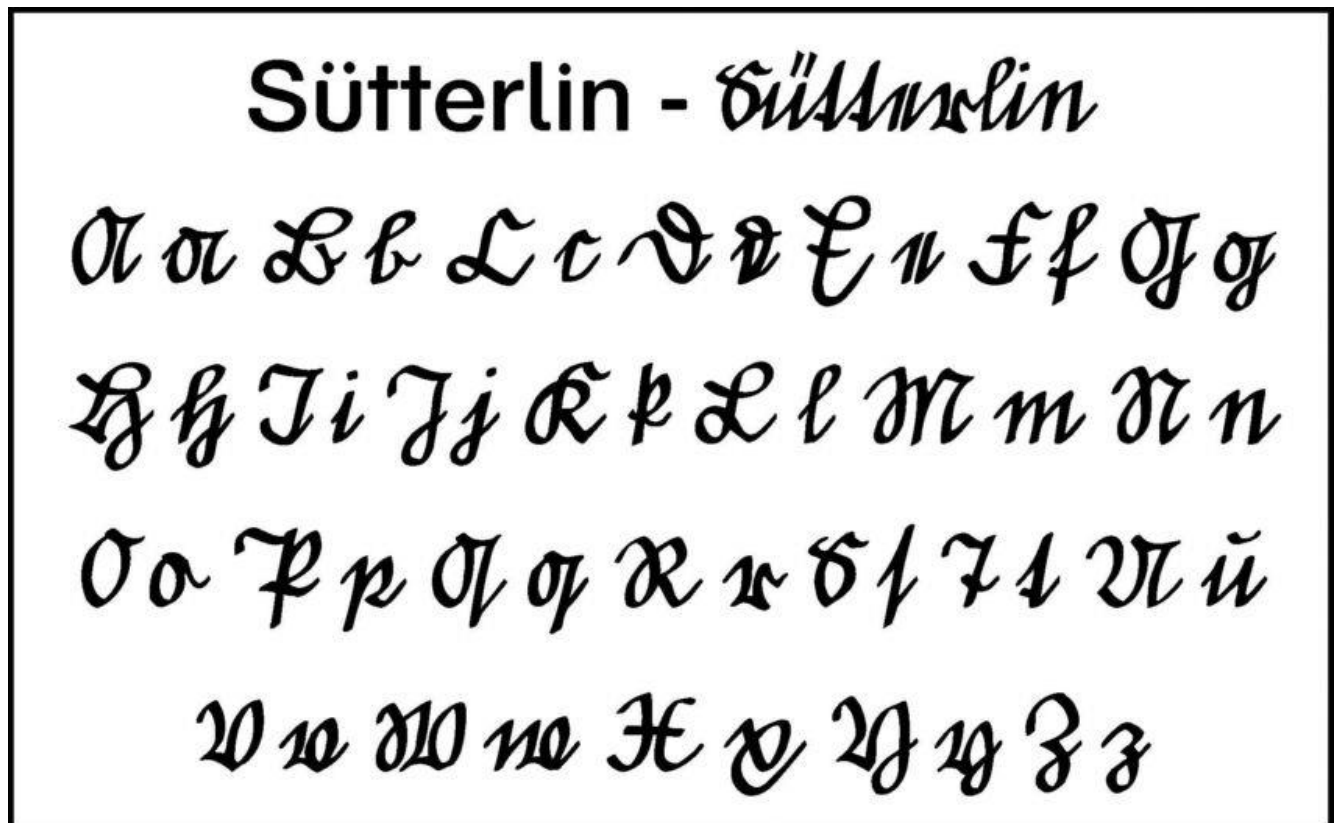 Sütterlin - Sütterlin
A a B b C c D d E e F f G g
H h I i J j K k L l M m N n
O o P p Q q R r S ſ T t U u
V v W w X x Y y Z z